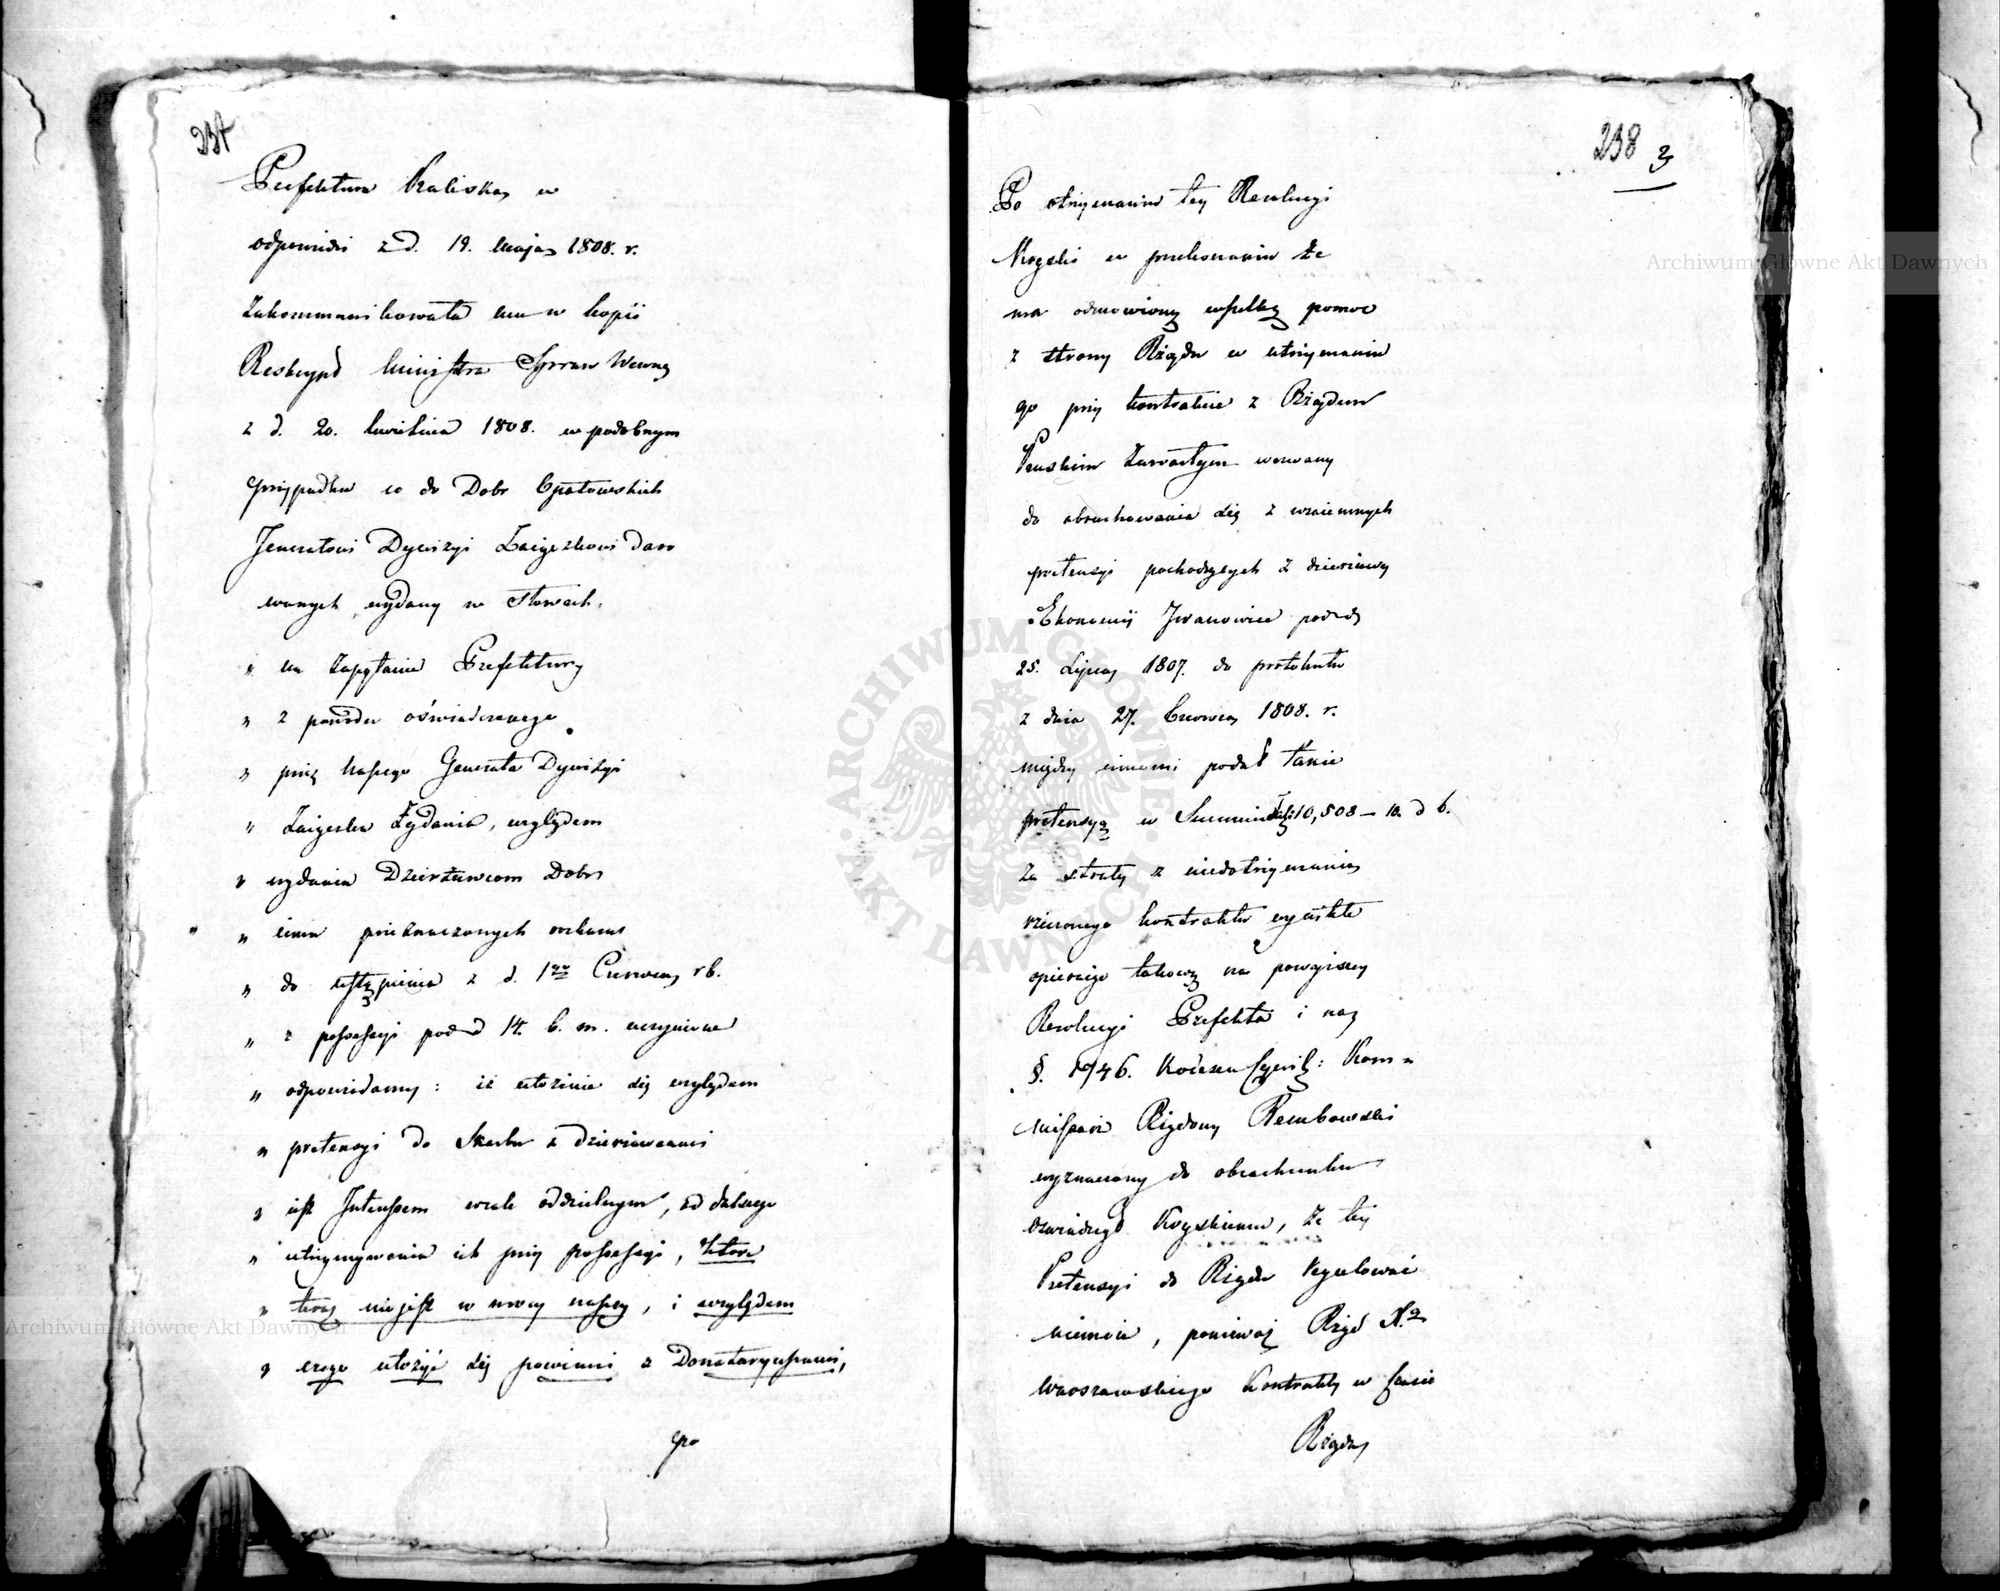 237
Prefektura Kaliska w
odpowiedzi z d. 19. maja 1808. r.
zakommunikowała mu w kopii
Reskrypt Ministra Spraw Wewnę
z d. 20. kwietnia 1808. w podobnym
przypadku co do Dobr Opatowskich
Jenerałowi Dywizyi Zaiączkowi daro
wanych wydany w słowach.
„ na zapytanie Prefektury
„ z powodu oświadczonego
„ przez naszego Generała Dywizyi
„ Zaiączka żądania, względem
„ wydania Dzierżawcom Dobr
„ iemu przeznaczonych rozkazu
„ do ustąpienia z d. 1go Czerwca rb.
„ z possessyi pod d 14. b. m. uczynione
„ odpowiadamy: iż ułożenie się względem
„ pretensyi do Skarbu z dzierżawcami
„ iest Interessem wcale oddzielnym, od dalszego
„ utrzymywania ich przy possessyi, które
„ teraz nie jest w mocy naszey, i względem
„ czego ułożyć się powinni z Donataryuszami,
Po
238 3
Po otrzymaniu tey Rezolucyi
Kręski w przekonaniu że
ma odmówioną wszelką pomoc
z strony Rządu w utrzymaniu
go przy kontrakcie z Rządem
Pruskim zawartym wezwany
do obrachowania się z wzaiemnych
pretensyi pochodzących z dzierżawy
Ekonomii Iwanowice pod d
25. Lipca 1807. do protokułu
z dnia 27. Czerwca 1808. r.
między innemi podał także
pretensyą w Summie 10,508 – 10. d 6.
za straty z niedotrzymania
rzeczonego kontraktu wynikłe
opieraiąc takową na powyższey
Rezolucyi Prefekta i na
§. 1746. Kodexu Cywil: Kom-
missarz Rządowy Rembowski
wyznaczony do obrachunku
oświadczył Kręskiemu, że tey
Pretensyi do Rządu regulować
niemoże, ponieważ Rząd Xa
Warszawskiego Kontrakty w czasie
Rządu
Archiwum Główne Akt Dawnych
Archiwum Główne Akt Dawnych
ARCHIWUM GŁÓWNE AKT DAWNYCH